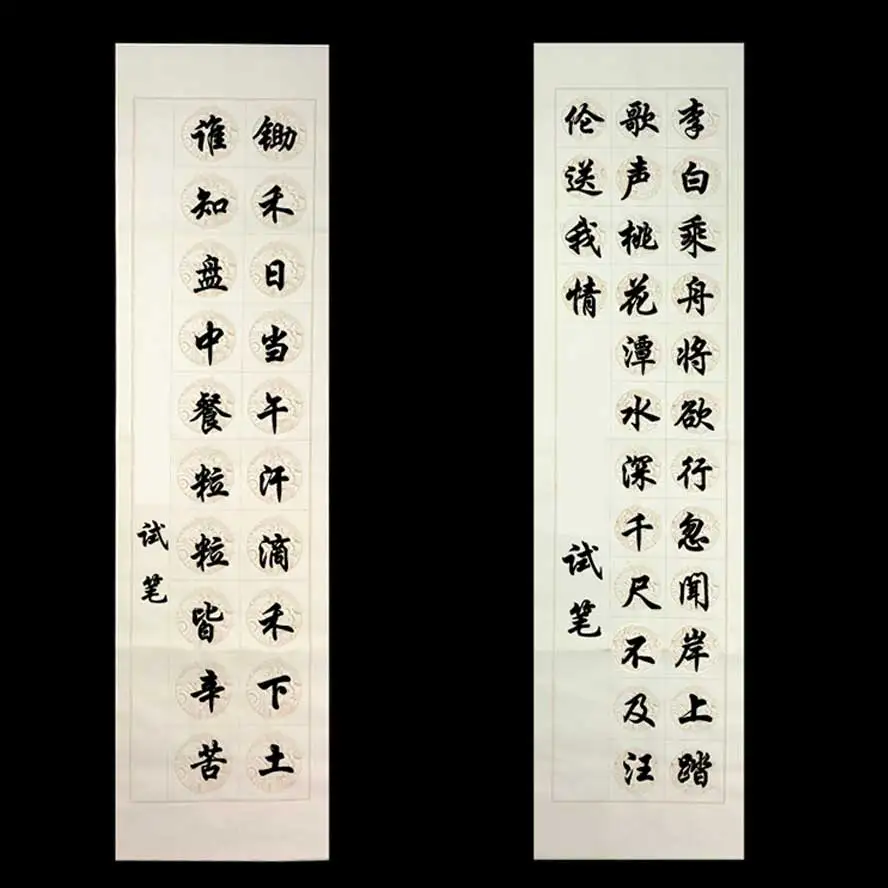 李白乘舟将欲行忽闻岸上踏
歌声桃花潭水深千尺不及汪
伦送我情
试笔
锄禾日当午汗滴禾下土
谁知盘中餐粒粒皆辛苦
试笔